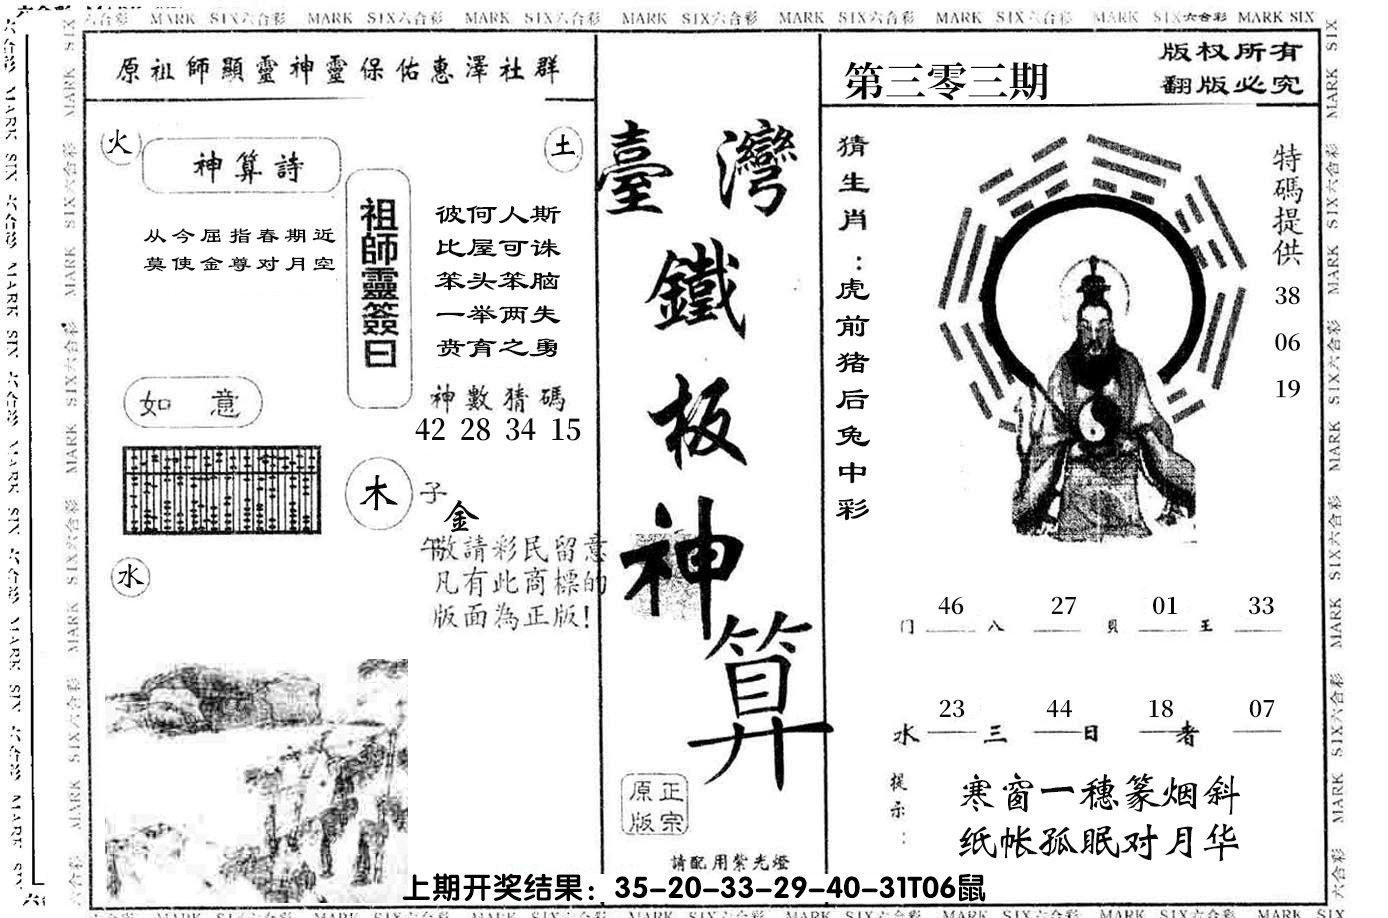 六合彩 MARK SIX六合彩 MARK SIX六合彩 MARK SIX六合彩 MARK SIX六合彩 MARK SIX六合彩 MARK SIX六合彩 MARK SIX六合彩 MARK SIX
原祖師顯靈神靈保佑惠澤社群
火
土
神算詩
从今屈指春期近
莫使金尊对月空
祖師靈簽曰
彼何人斯
比屋可诛
笨头笨脑
一举两失
贲育之勇
神數猜碼
42 28 34 15
如意
木
子
金
午
敬請彩民留意
凡有此商標的
版面為正版!
水
臺灣
鐵
板
神
算
正宗
原版
請配用紫光燈
第三零三期
版权所有
翻版必究
猜生肖:虎前猪后兔中彩
特碼提供
38
06
19
46 27 01 33
门 八 貝 王
23 44 18 07
水 三 日 者
提示:
寒窗一穗篆烟斜
纸帐孤眠对月华
上期开奖结果：35-20-33-29-40-31T06鼠